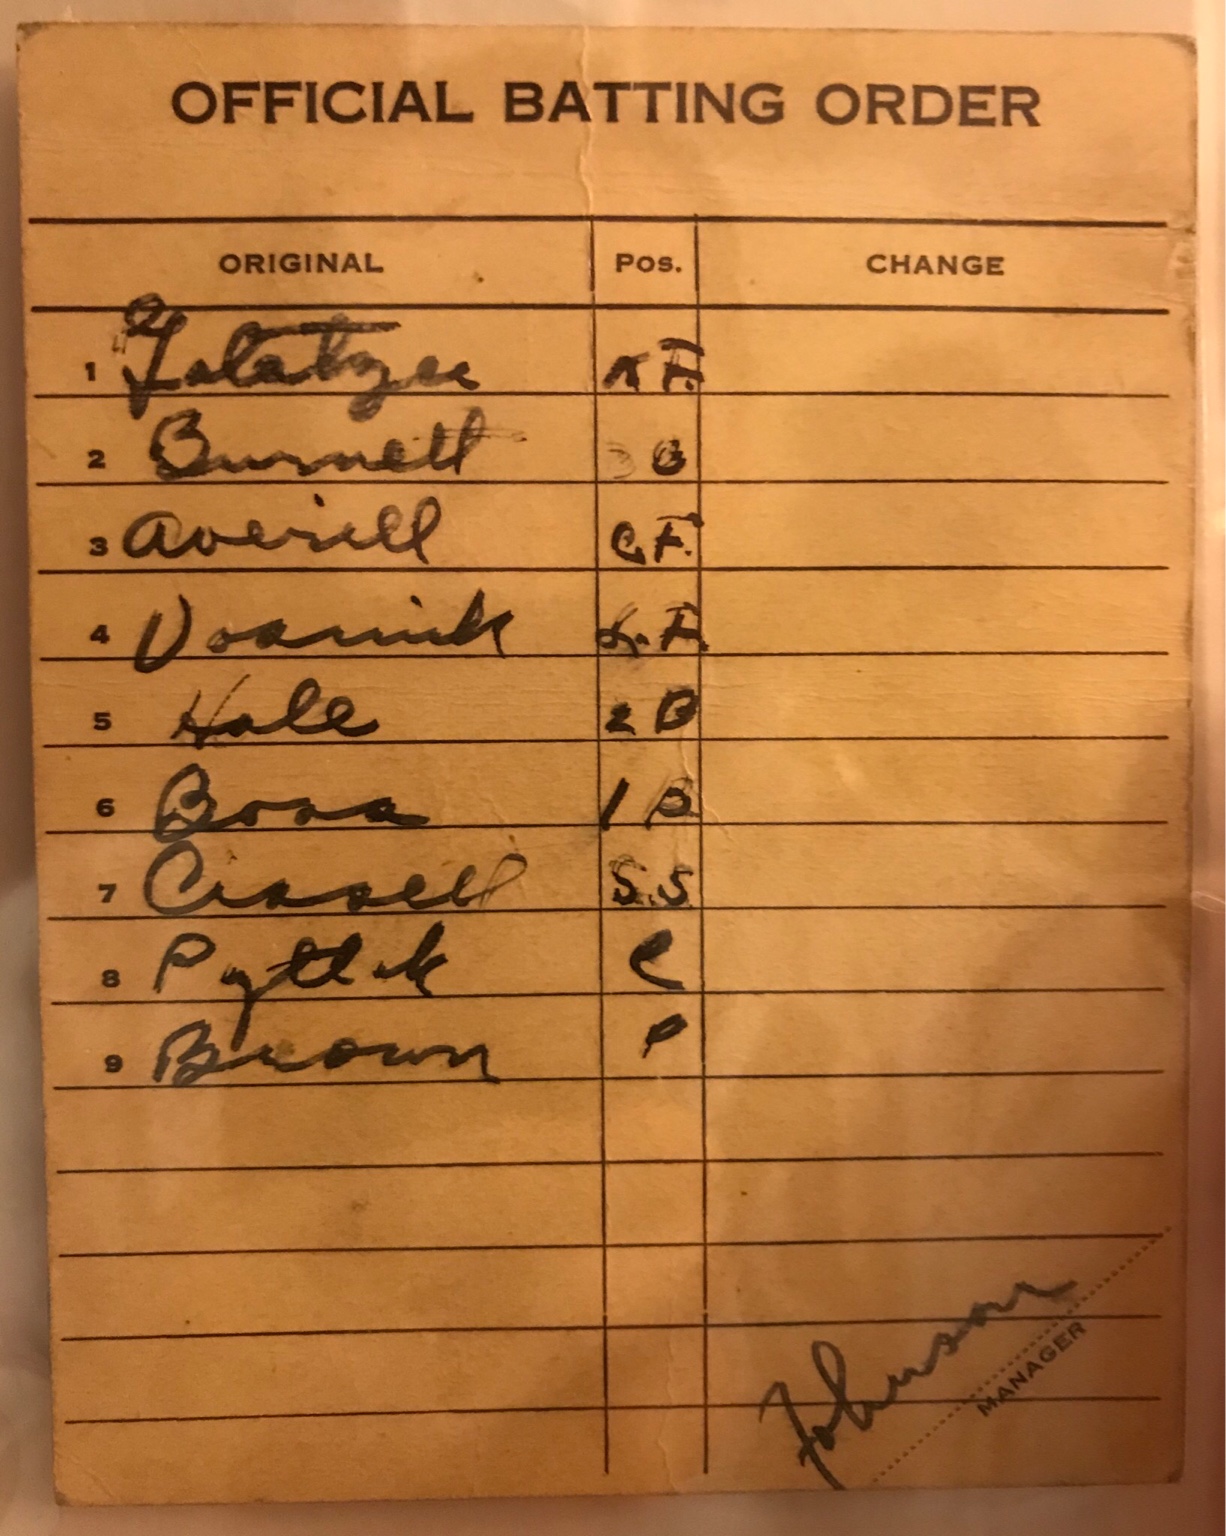 OFFICIAL BATTING ORDER
ORIGINAL Pos. CHANGE
1 Galatzer R F.
2 Burnett 3 B
3 Averill C.F.
4 Vosmik L.F.
5 Hale 2 B
6 Boss 1 B
7 Cissell S.S.
8 Pytlak C
9 Brown P
Johnson
MANAGER